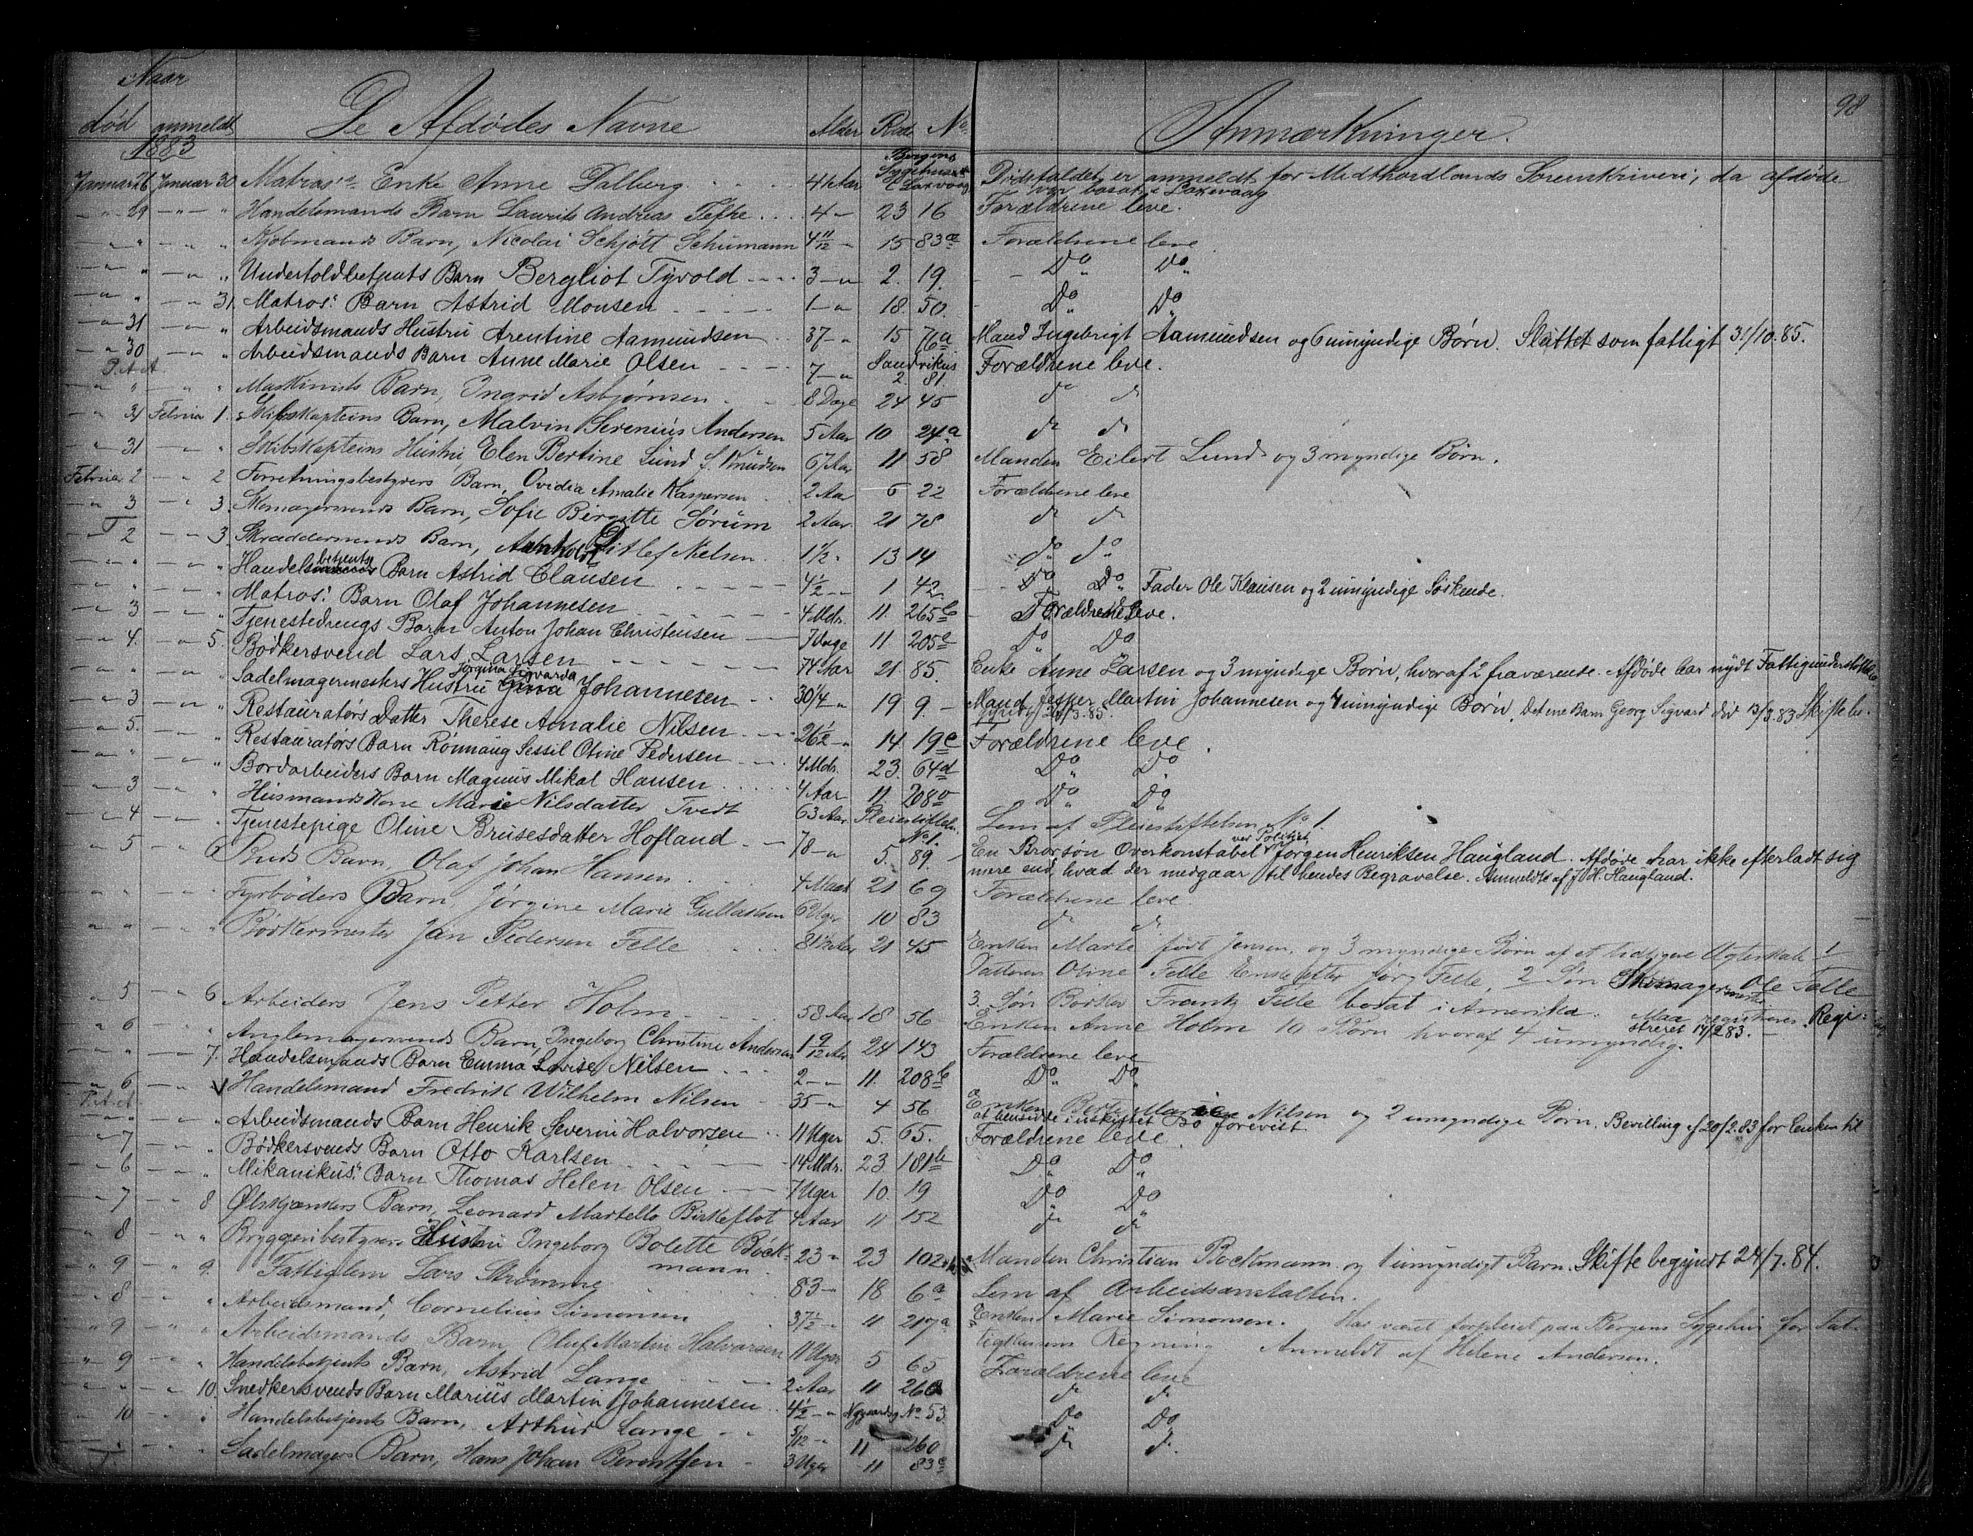 98
Naar
død anmeldt De Afdødes Navne Alder Rode No Anmærkninger.
1883
Januar 26 Januar 30 Matros' Enke Anne Dalberg 41 Aar Bergens Sygehuus Laxevaag Dødsfaldet er anmeldt for Midthordlands Sorenskriveri, da afdøde
var bosat i Laxevaag
29 Handelsmands Barn Laurits Andreas Tefke 4 23 16 Forældrene leve.
Kjøbmands Barn, Nicolai Schjött Schumann 4 11/12 15 83a Forældrene leve
Undertoldbetjents Barn Bergliot Tyvold 3 2. 19. Do Do
31. Matros' Barn Astrid Monsen 1 18. 50. Do Do
31 Arbeidsmands Hustru Arentine Aamundsen 37 15 76a Mand Ingebrigt Aamundsen og 6 umyndige Børn. Sluttet som fattigt 31/10.85.
30 Arbeidsmands Barn Anne Marie Olsen 7 Sandvikus 2. 81 Forældrene leve.
Maskinists Barn, Ingrid Asbjørnsen 8 Dage 24 45 do do
31 Februar 1. Skibskapteins Barn, Malvin Serenius Andersen 5 Aar 10 24a do do
31 Skibskapteins Hustru Elen Bertine Lund f. Knudsen 67 Aar 11 58 Manden Eilert Lund og 3 myndige Børn.
Februar 2 2 Forretningsbestyrers Barn, Ovidia Amalie Kaspersen 2 Aar 6 22 Forældrene leve
3 3. Skomagersvends Barn, Sofie Birgitte Sørum 2 Aar. 21 78 do do
2 3. Skræddersvends Barn, Ditlef Nielsen 1 1/2 13 14 do do
Handelsbetjents Barn Astrid Clausen 4 1/2 1 42. Do Do Fader Ole Klausen og 2 umyndige Søskende.
Matros' Barn Olaf Johannesen 4 Mdr. 11. 265b Forældrene leve.
3 Tjenestedrengs Barn Anton Johan Christensen 7 Dage 11 205a Do Do
4. 5. Bødkersvend Lars Larsen 74 Aar 21. 85. Enke Anne Larsen og 3 myndige Børn, hvoraf 2 fraværende. Afdøde har nydt Fattigunderstøttelse
Sadelmagermesters Hustru Jørgina Sigvarda Johannesen 30 1/4 19 9 Mand Jesper Martin Johannesen og 4 umyndige Børn, Det ene Barn Georg Sigvard død 13/3.83 Skifte be-
3 Restauratørs Datter Therese Amalie Nilsen 26 1/2 14 19c Forældrene leve.
5. Restauratørs Barn Rønnaug Sessil Oline Pedersen 4 Mdr. 23. 64d Do Do
Bordarbeiders Barn Magnus Mikal Hansen 4 Aar 11 208 Do Do
3 Huusmands Kone Marie Nilsdatter Tvedt 63 Aar Pleiestiftelsen No 1. Lem af Pleiestiftelsen No 1.
4 Tjenestepige Oline Brusesdatter Hofland 78 5. 89. En Brorsøn Overkonstabel ved Politiet Jørgen Henriksen Haugland. Afdøde har ikke efterladt sig
mere end, hvad der medgaar til hendes Begravelse. Anmeldt af J. H. Haugland.
5 6 Barn, Olaf Johan Hansen 4 Maan 21 69 Forældrene leve
Fyrbøders Barn, Jørgine Marie Gullaksen 6 Uger 10 83 do do
Bødkermester Jan Pedersen Felle 81 1/2 Aar 21 45 Enken Marte født Jensen, og 3 myndige Børn af et tidligere Ægteskab 1
Datteren Oline Felle Enke efter Felle, 2 Søn Skomagermester Ole Felle
3. Søn Bødker Frantz Felle bosat i Amerika. Maa registreres. Regi-
streret 14/2 83.
5 6 Arbeider Jens Petter Holm 58 Aar 18 56 Enken Anne Holm 10 Børn hvoraf 4 umyndig.
6 Anglemagersvends Barn, Ingeborg Christine Andersen 1 9/12 Aar 24 143 Forældrene leve
7. Handelsmands Barn Emma Lovise Nilsen 2 11. 208b Do Do
6 Handelsmand Fredrik Wilhelm Nilsen 35 4 56 Enken Berte Marie Nilsen og 2 umyndige Børn. Bevilling af 20/2.83 for Enken til
at hensidde i uskiftet Bo forevist.
Arbeidsmands Barn Henrik Severin Halvorsen 11 Uger 5. 65. Forældrene leve.
7 Bødkersvends Barn Otto Karlsen 14 Mdr. 23. 181b Do Do
6 Mikanikus' Barn Thomas Helen Olsen 7 Uger 10. 19 Do Do
7 8 Ølskjænkers Barn, Leonard Martello Birkeflot 4 Aar 11 152 do do
8 Bryggeribestyrers Hustru Ingeborg Bolette Böck-
mann 23 23 102 Manden Christian Bockmann og 1 umyndigt Barn. Skifte begyndt 24/7.84.
9 9. Fattiglem Lars Strømme 83 18 6a Lem af Arbeidsanstalten.
8 Arbeidsmand, Cornelius Simonsen 37 1/2 11 217a Enken Marie Simonsen. Har været forpleiet paa Bergens Sygehus for Fat-
tigkassens Regning Anmeldt af Helene Andersen.
9 Arbeidsmands Barn Oluf Martin Halvorsen 11 Uger 5 65 Forældrene leve
9 Handelsbetjents Barn, Astrid Lange 2 Aar 11 260 do do
10. Snedkersvends Barn Marius Martin Johannesen 4 1/2 Nygaardsg No 53. Do Do
10 Handelsbetjents Barn, Arthur Lange 5/12 11 260 do do
Sadelmagers Barn, Hans Johan Berentsen 3 Uger 11 83c